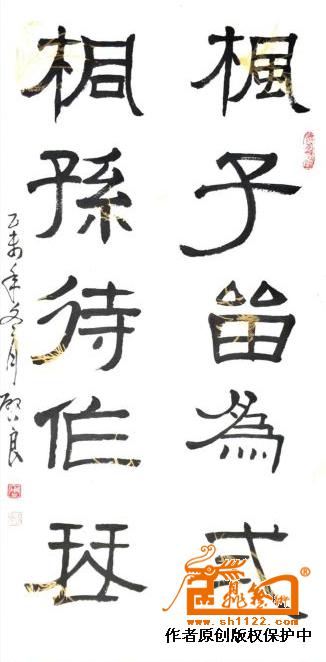 楓子留為式
桐孫待作琴
乙未年冬月
良
www.sh1122.com
作者原创版权保护中